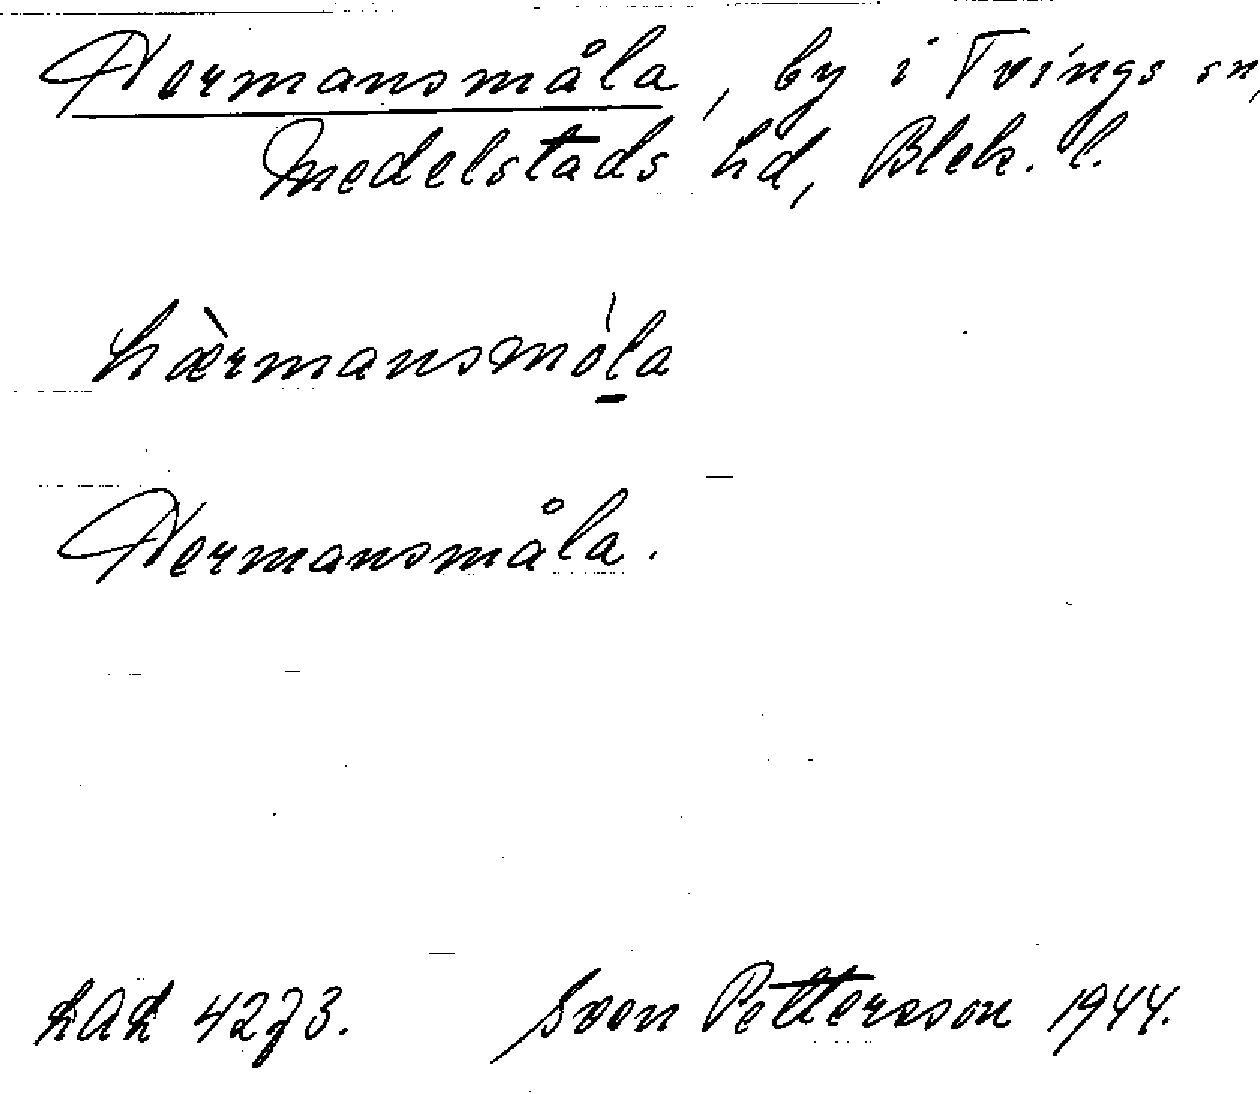 Hermansmåla, by i Tvings sn,
Medelstads hd, Blek. l.
hæ̀rmansmóla
Hermansmåla.
LAL 4273. Sven Pettersson 1944.